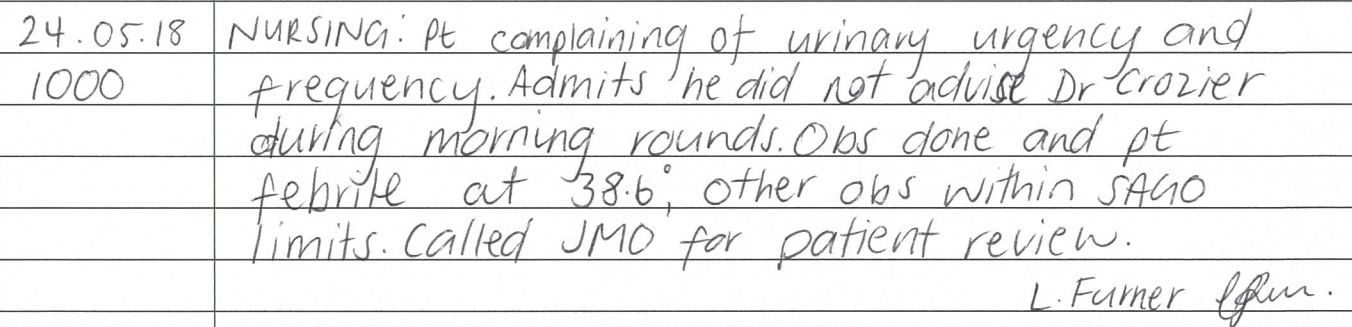 24.05.18 NURSING: Pt complaining of urinary urgency and
1000 frequency. Admits he did not advise Dr Crozier
during morning rounds. Obs done and pt
febrile at 38.6°, other obs within SAGO
limits. Called JMO for patient review.
L. Furner